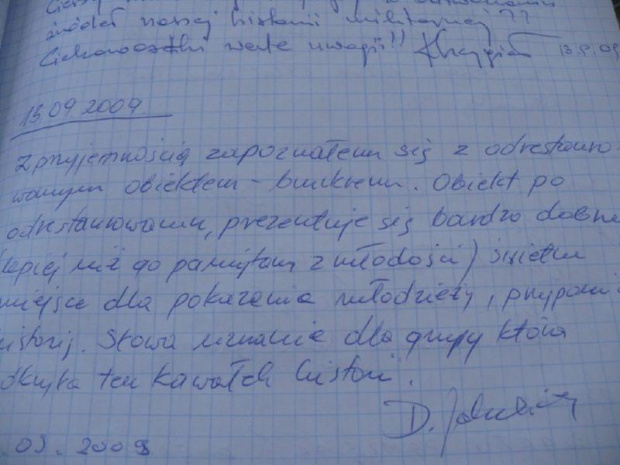 źródeł naszej historii militarnej??
Ciekawostki warte uwagi!!
15.09.2009
Z przyjemnością zapoznałem się z odrestauro
wanym obiektem - bunkrem. Obiekt po
odrestaurowaniu, prezentuje się bardzo dobrze
(lepiej niż go pamiętam z młodości) świetne
miejsce dla pokazania młodzieży, przypomi
historij. Słowa uznania dla grupy która
odkryła ten kawałek histori.
D.
.09.2009